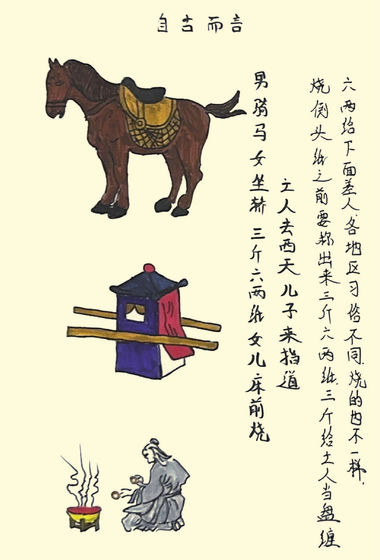 自古而言
男骑马女坐轿三斤六两纸女儿床前烧
亡人去西天儿子来指道
烧倒头纸之前要称出来三斤六两纸.三斤给亡人当盘缠
六两给下面差人.各地区习俗不同.烧的也不一样.